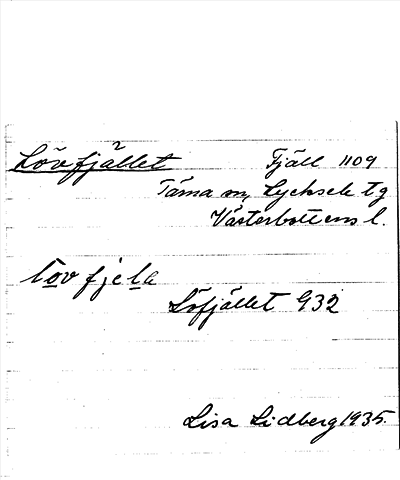 Lövfjället Fjäll 1109
Tärna sn, Lycksele tg
Västerbottens l.
lovfjela
Löfjället G32
Lisa Lidberg 1935.